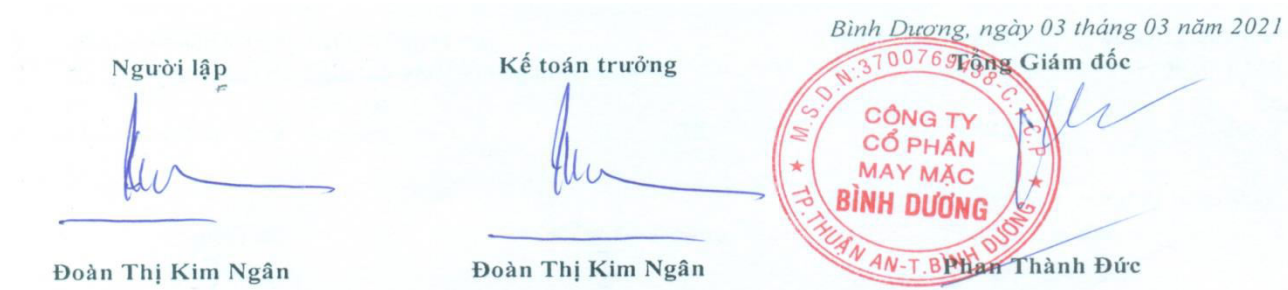 Bình Dương, ngày 03 tháng 03 năm 2021
Người lập
Kế toán trưởng
Tổng Giám đốc
M.S.D.N:3700769438-C.T.C.P
CÔNG TY
CỔ PHẦN
MAY MẶC
BÌNH DƯƠNG
TP.THUẬN AN-T.BÌNH DƯƠNG
Đoàn Thị Kim Ngân
Đoàn Thị Kim Ngân
Phan Thành Đức